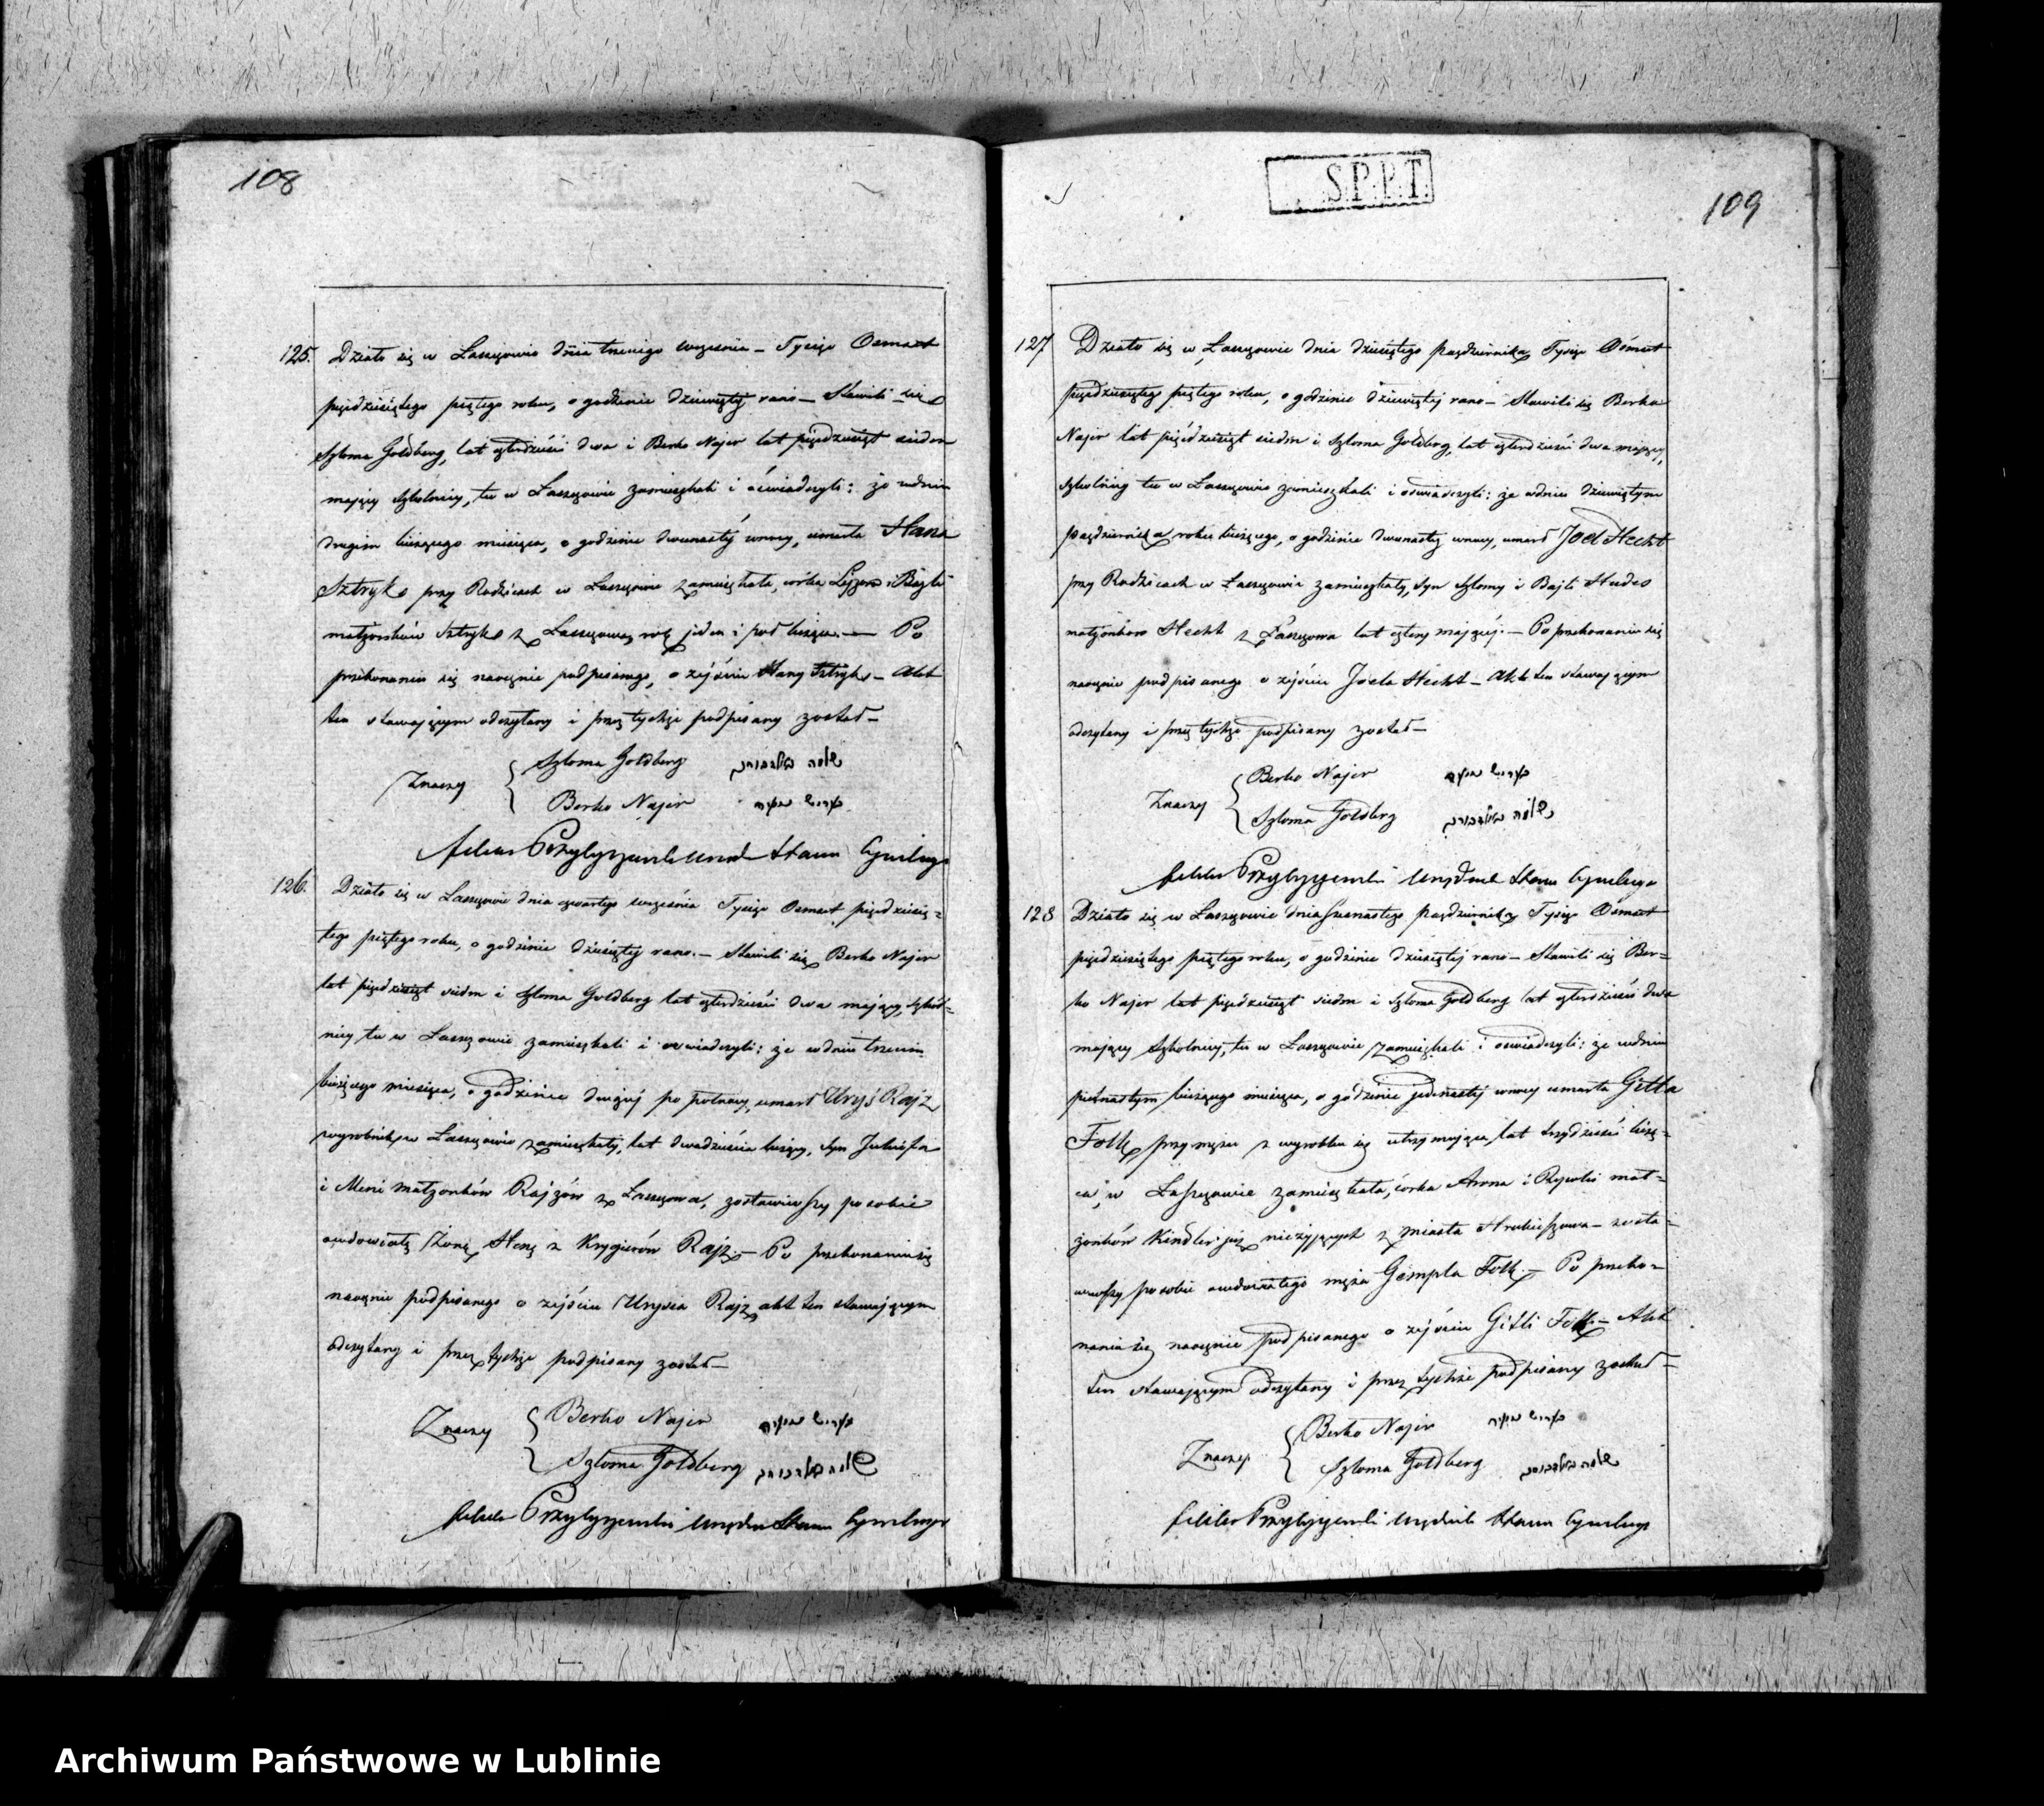 108
125. Działo się w Łaszczowie dnia trzeciego września – Tysiąc Osmset
pięćdziesiątego piątego roku, o godzinie dziewiątej rano – Stawili się
Szloma Goldberg, lat czterdzieści dwa i Berko Najer lat pięćdziesiąt siedm
mający Szkolnicy, tu w Łaszczowie zamieszkali i oświadczyli: że wdniu
drugim bieżącego miesiąca, o godzinie dwunastej wnocy, umarła Hana
Sztryks przy Rodzicach w Łaszczowie zamieszkała, córka Lejzora i Bejli
małżonków Sztryks z Łaszczowa, rok jeden i pół licząca. — Po
przekonaniu się naocznie podpisanego, o zejściu Hany Sztryks – Akt
ten stawającym odczytany i przez tychże podpisany został –
Znaczy { Szloma Goldberg שלמה גאלדבורג
Berko Najer בעריש נייער
Feliks Przyłyszewski Urzęd Stanu Cywilnego
126. Działo się w Łaszczowie dnia czwartego września Tysiąc Osmset pięćdziesią=
tego piątego roku, o godzinie dziesiątej rano. – Stawili się Berko Najer
lat pięćdziesiąt siedm i Szloma Goldberg lat czterdzieści dwa mający, Szkol=
nicy, tu w Łaszczowie zamieszkali i oświadczyli: że wdniu trzecim
bieżącego miesiąca, o godzinie drugiej po północy, umarł Uryś Rajz
wyrobnik, w Łaszczowie zamieszkały, lat dwadzieścia liczący, syn
i Meni małżonków Rajzów z Łaszczowa, zostawiwszy po sobie
owdowiałą Żonę Henę z Krygierów Rajz. – Po przekonaniu się
naocznie podpisanego o zejściu Urysia Rajz, akt ten stawającym
odczytany i przez tychże podpisany został –
Znaczy { Berko Najer בעריש נייער
Szloma Goldberg שלמה גאלדבורג
Feliks Przyłyszewski Urzędnik Stanu Cywilnego
S.P.P.T.
109
127 Działo się w Łaszczowie dnia dziesiątego października Tysiąc Ósmset
pięćdziesiątego piątego roku, o godzinie dziewiątej rano – Stawili się Berko
Najer lat pięćdziesiąt siedm i Szloma Goldberg, lat czterdzieści dwa mający,
Szkolnicy tu w Łaszczowie zamieszkali i oświadczyli: że wdniu dziewiątym
października roku bieżącego, o godzinie dwunastej wnocy, umarł Joel Hecht
przy Rodzicach w Łaszczowie zamieszkały, syn Szlomy i Bajli Hudes
małżonków Hecht z Łaszczowa lat cztery mający. – Po przekonaniu się
naocznie podpisanego o zejściu Joela Hecht – Akt ten stawającym
odczytany i przez tychże podpisany został –
Znaczy { Berko Najer בעריש נייער
Szloma Goldberg שלמה גאלדבורג
Feliks Przyłyszewski Urzędnik Stanu Cywilnego
128 Działo się w Łaszczowie dnia szesnastego października Tysiąc Ósmset
pięćdziesiątego piątego roku, o godzinie dziesiątej rano – Stawili się Ber=
ko Najer lat pięćdziesiąt siedm i Szloma Goldberg lat czterdzieści dwa
mający Szkolnicy, tu w Łaszczowie zamieszkali i oświadczyli: że wdniu
piętnastym bieżącego miesiąca, o godzinie jedenastej wnocy umarła Gitla
Folk, przy mężu z wyrobku się utrzymująca, lat trzydzieści liczą=
ca, w Łaszczowie zamieszkała, córka Arona i Rywki mał=
żonków Kindler już nieżyjących z miasta Hrubieszowa – zosta=
wiwszy po sobie owdowiałego męża Gimpla Folk. – Po przeko=
naniu się naocznie podpisanego o zejściu Gitli Folk. – Akt
ten stawającym odczytany i przez tychże podpisany został –
Znaczy { Berko Najer בעריש נייער
Szloma Goldberg שלמה גאלדבורג
Feliks Przyłyszewski Urzędnik Stanu Cywilnego
Archiwum Państwowe w Lublinie